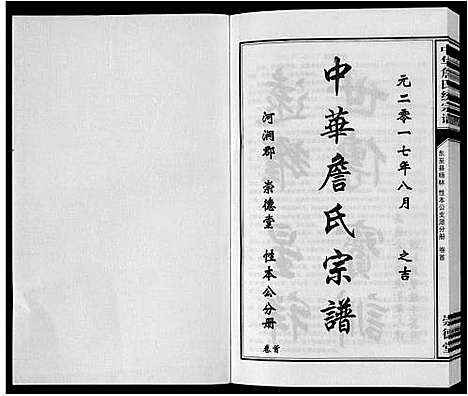 中华詹氏统宗谱
东至县杨林 性本公支派分册 卷首
崇德堂
元二零一七年八月 之吉
中華詹氏宗譜
河澗郡 崇德堂 性本公分册
卷首